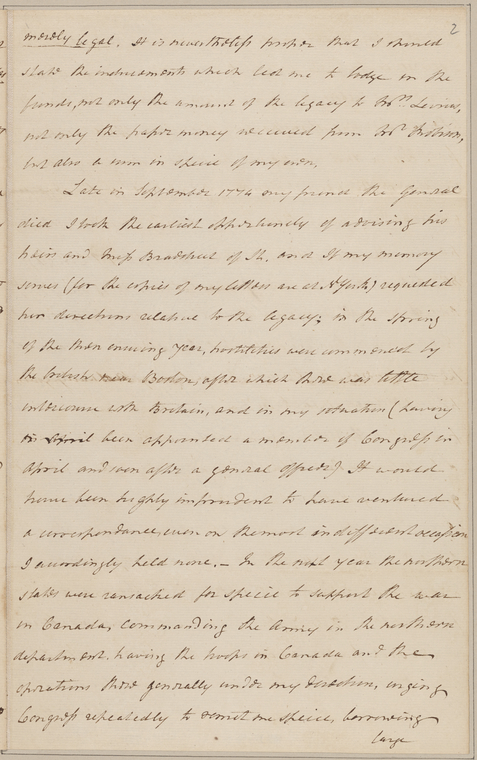 2
merely legal. It is nevertheless proper that I should
state the inducements which led me to lodge in the
funds, not only the amount of the legacy to
not only the paper money received from
but also a sum in specie of my own.
Late in September 1774 my friend the General
died I took the earliest opportunity of advising his
heirs and Miss Bradstreet of it, and if my memory
serves (for the copies of my letters are at N York) requested
her directions relative to the legacy; in the Spring
of the then ensuing year, hostilities were commenced by
the British near Boston, after which there was little
intercourse with Britain, and in my situation (having
in April been appointed a member of Congress in
April and soon after a general officer) It would
have been highly imprudent to have ventured
a correspondance, even on the most indifferent occasion
I accordingly held none. — In the next year the northern
states were ransacked for specie to support the war
in Canada, commanding the Army in the northern
department, having the troops in Canada and the
operations there generally under my direction, urging
Congress repeatedly to remit me specie, borrowing
large